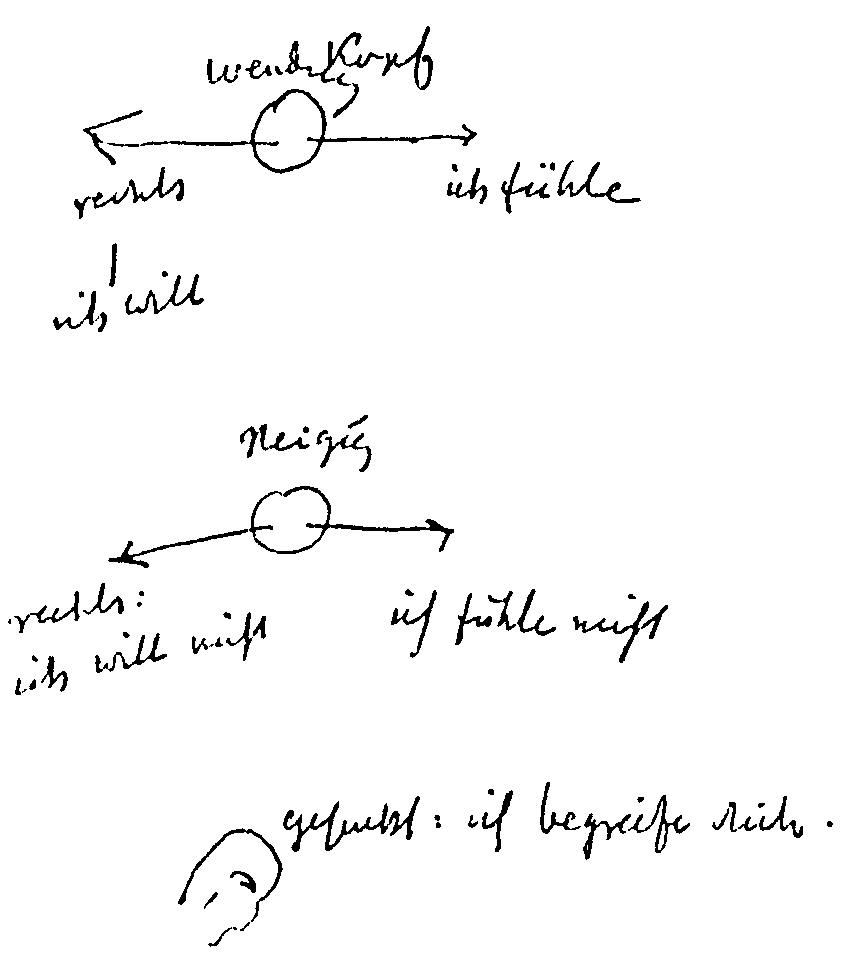 Wendg Kopf
rechts
ich fühle
ich will
Neigg
rechts:
ich will nicht
ich fühle nicht
gesenkt: ich begreife dich.